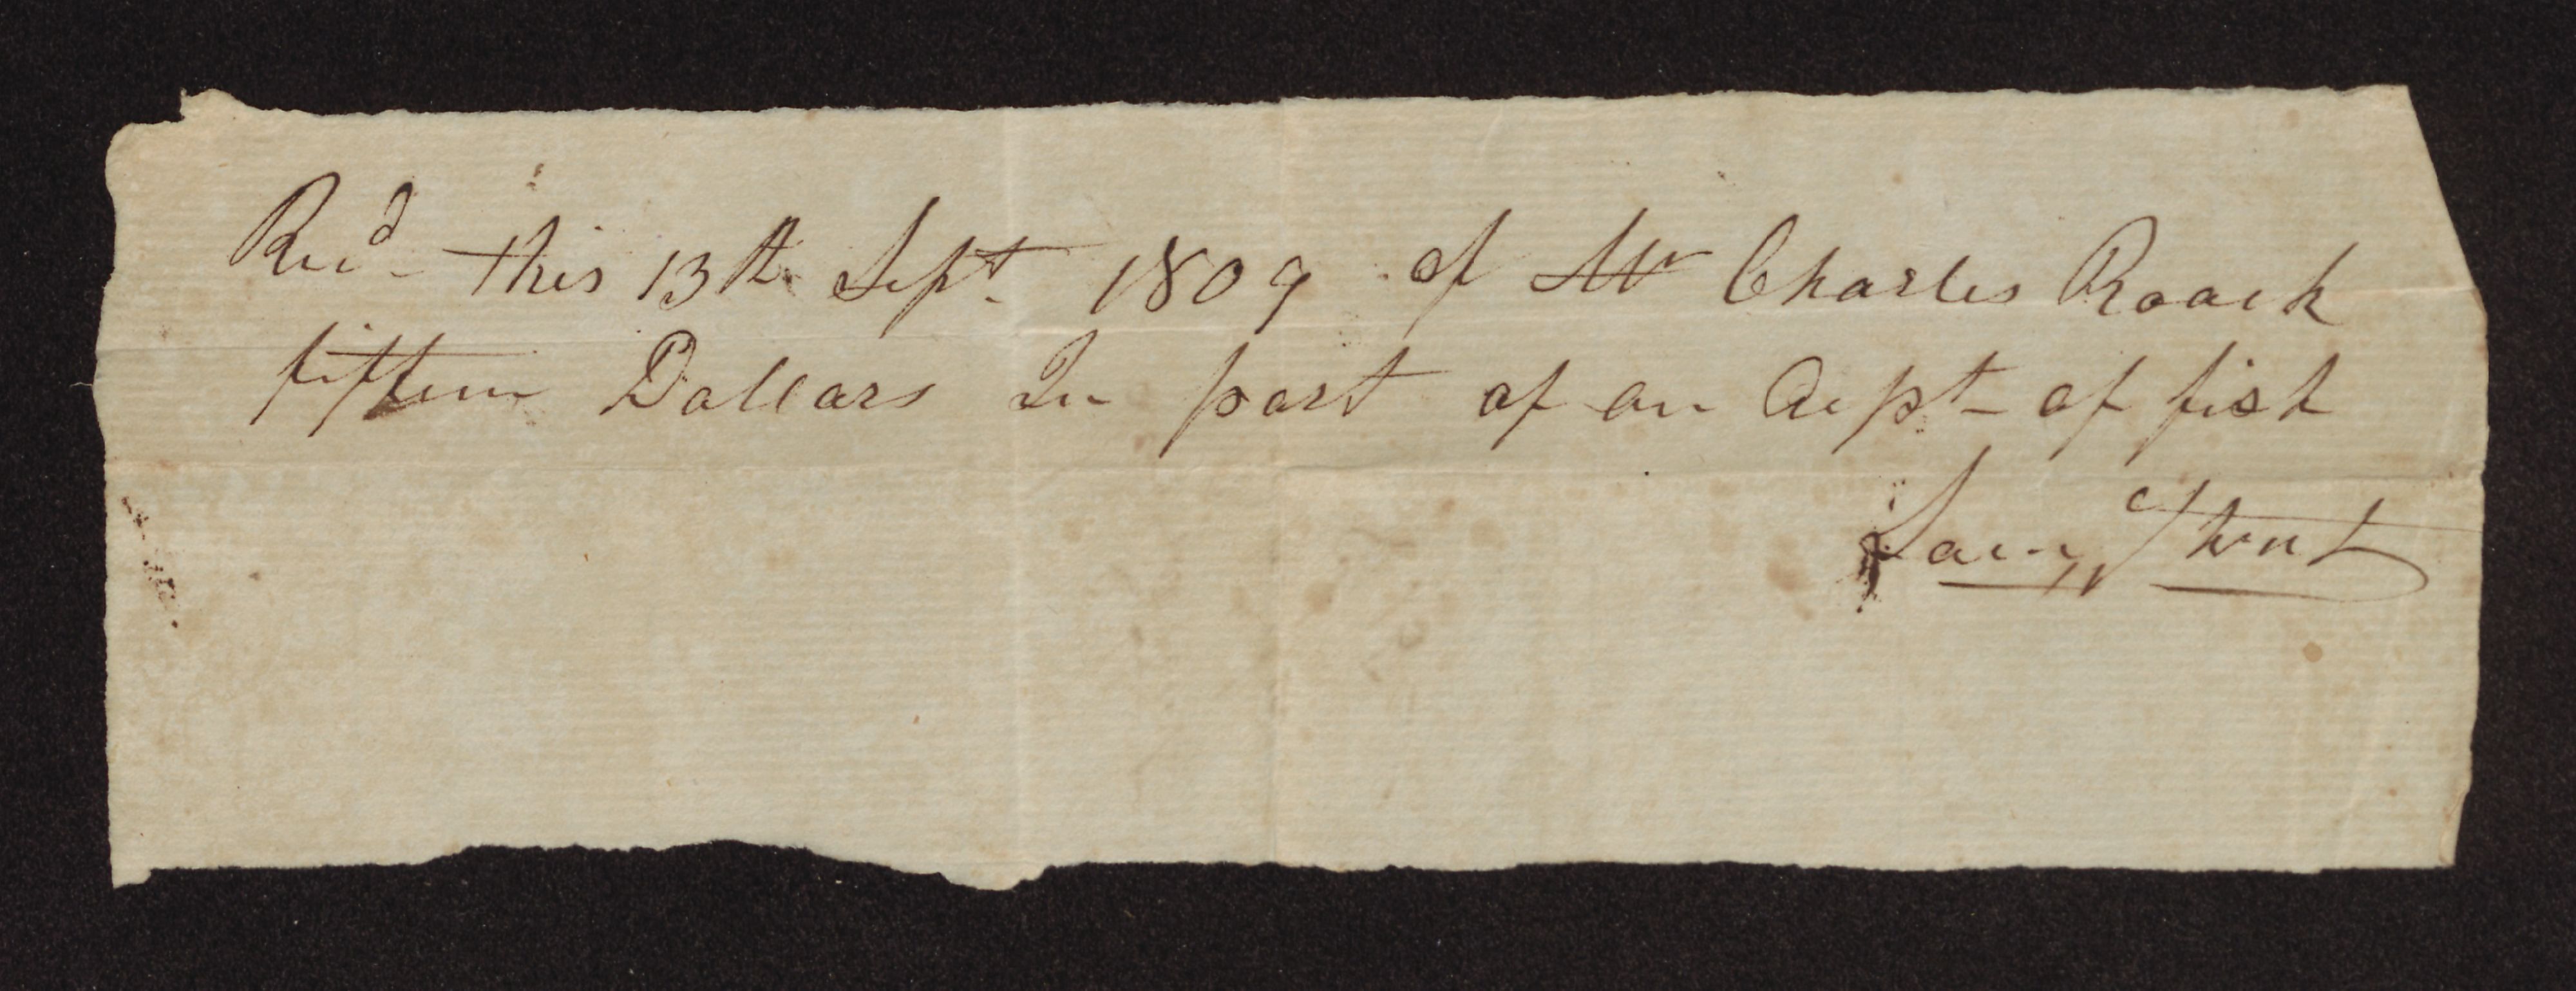 Recd- this 13th Sept. 1809 of Mr Charles Roach
fifteen Dollars In part of an Acpt- of fish